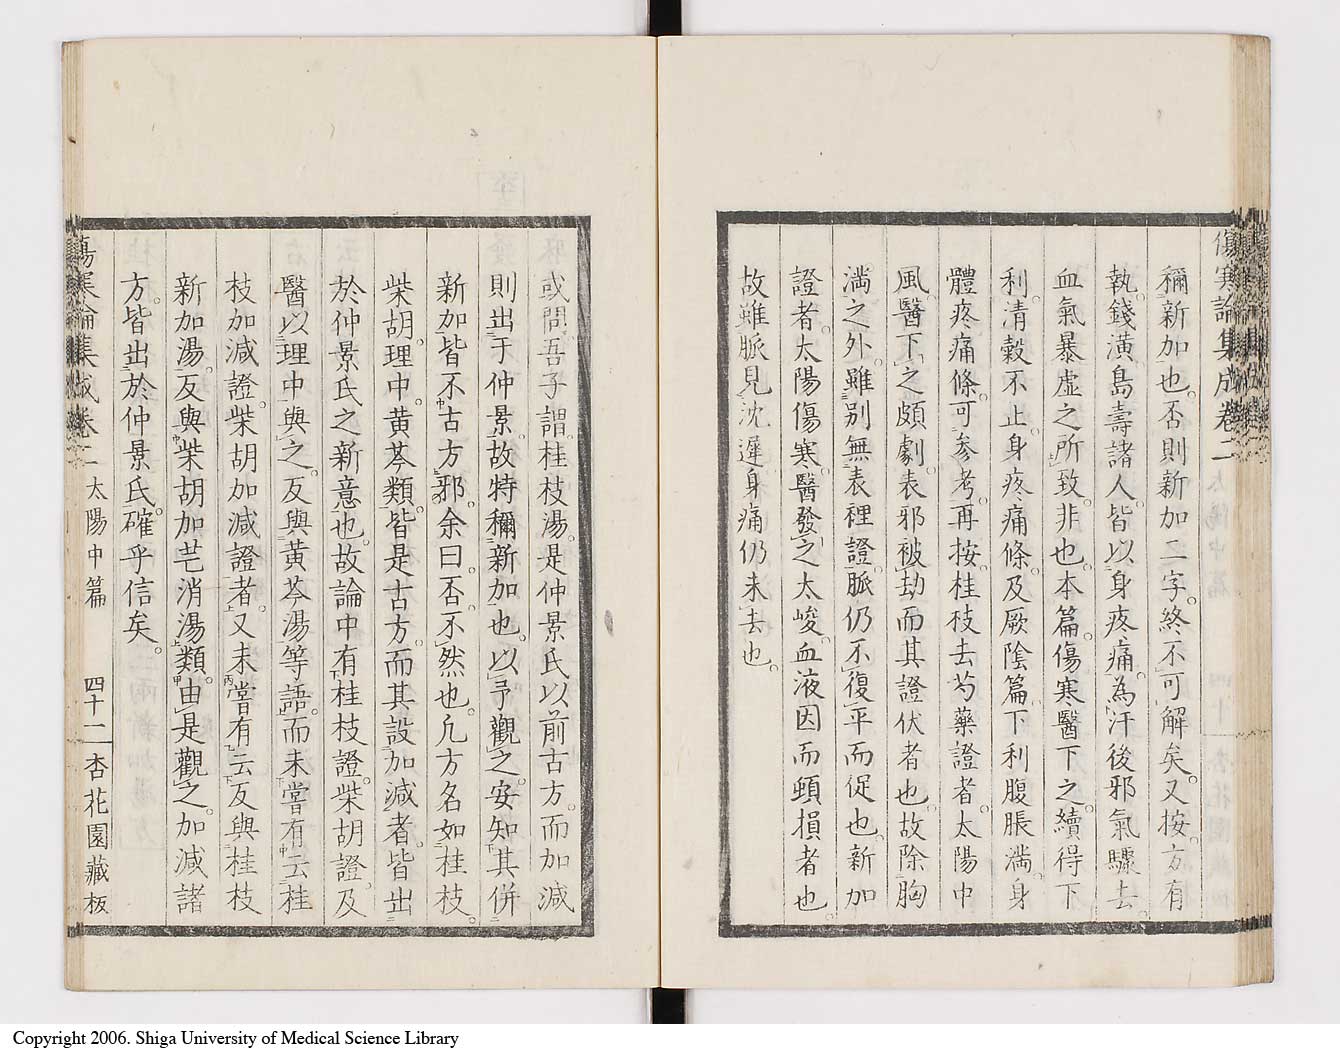 傷寒論集成卷二
稱新加也。否則新加二字。終不可解矣。又按。方有
執。錢潢。島壽諸人。皆以身疼痛。為汗後邪氣驟去。
血氣暴虛之所致。非也。本篇。傷寒醫下之。續得下
利。清穀不止。身疼痛條。及厥陰篇。下利腹脹滿。身
體疼痛條。可參考。再按。桂枝去芍藥證者。太陽中
風。醫下之頗劇。表邪被劫。而其證伏者也。故除胸
滿之外。雖別無表裡證。脈仍不復平而促也。新加
證者。太陽傷寒。醫發之太峻。血液因而頓損者也。
故雖脈見沈遲。身痛仍未去也。
或問。吾子謂。桂枝湯。是仲景氏以前古方。而加減
則出于仲景。故特稱新加也。以予觀之。安知其併
新加皆不古方邪。余曰。否。不然也。凡方名如桂枝。
柴胡。理中。黃芩類。皆是古方。而其設加減者。皆出
於仲景氏之新意也。故論中有桂枝證。柴胡證。及
醫以理中與之。反與黃芩湯等語。而未嘗有云桂
枝加減證。柴胡加減證者。又未嘗有云反與桂枝
新加湯。反與柴胡加芒消湯類。由是觀之。加減諸
方。皆出於仲景氏。確乎信矣。
傷寒論集成卷二 太陽中篇 四十二 杏花園藏板
Copyright 2006. Shiga University of Medical Science Library